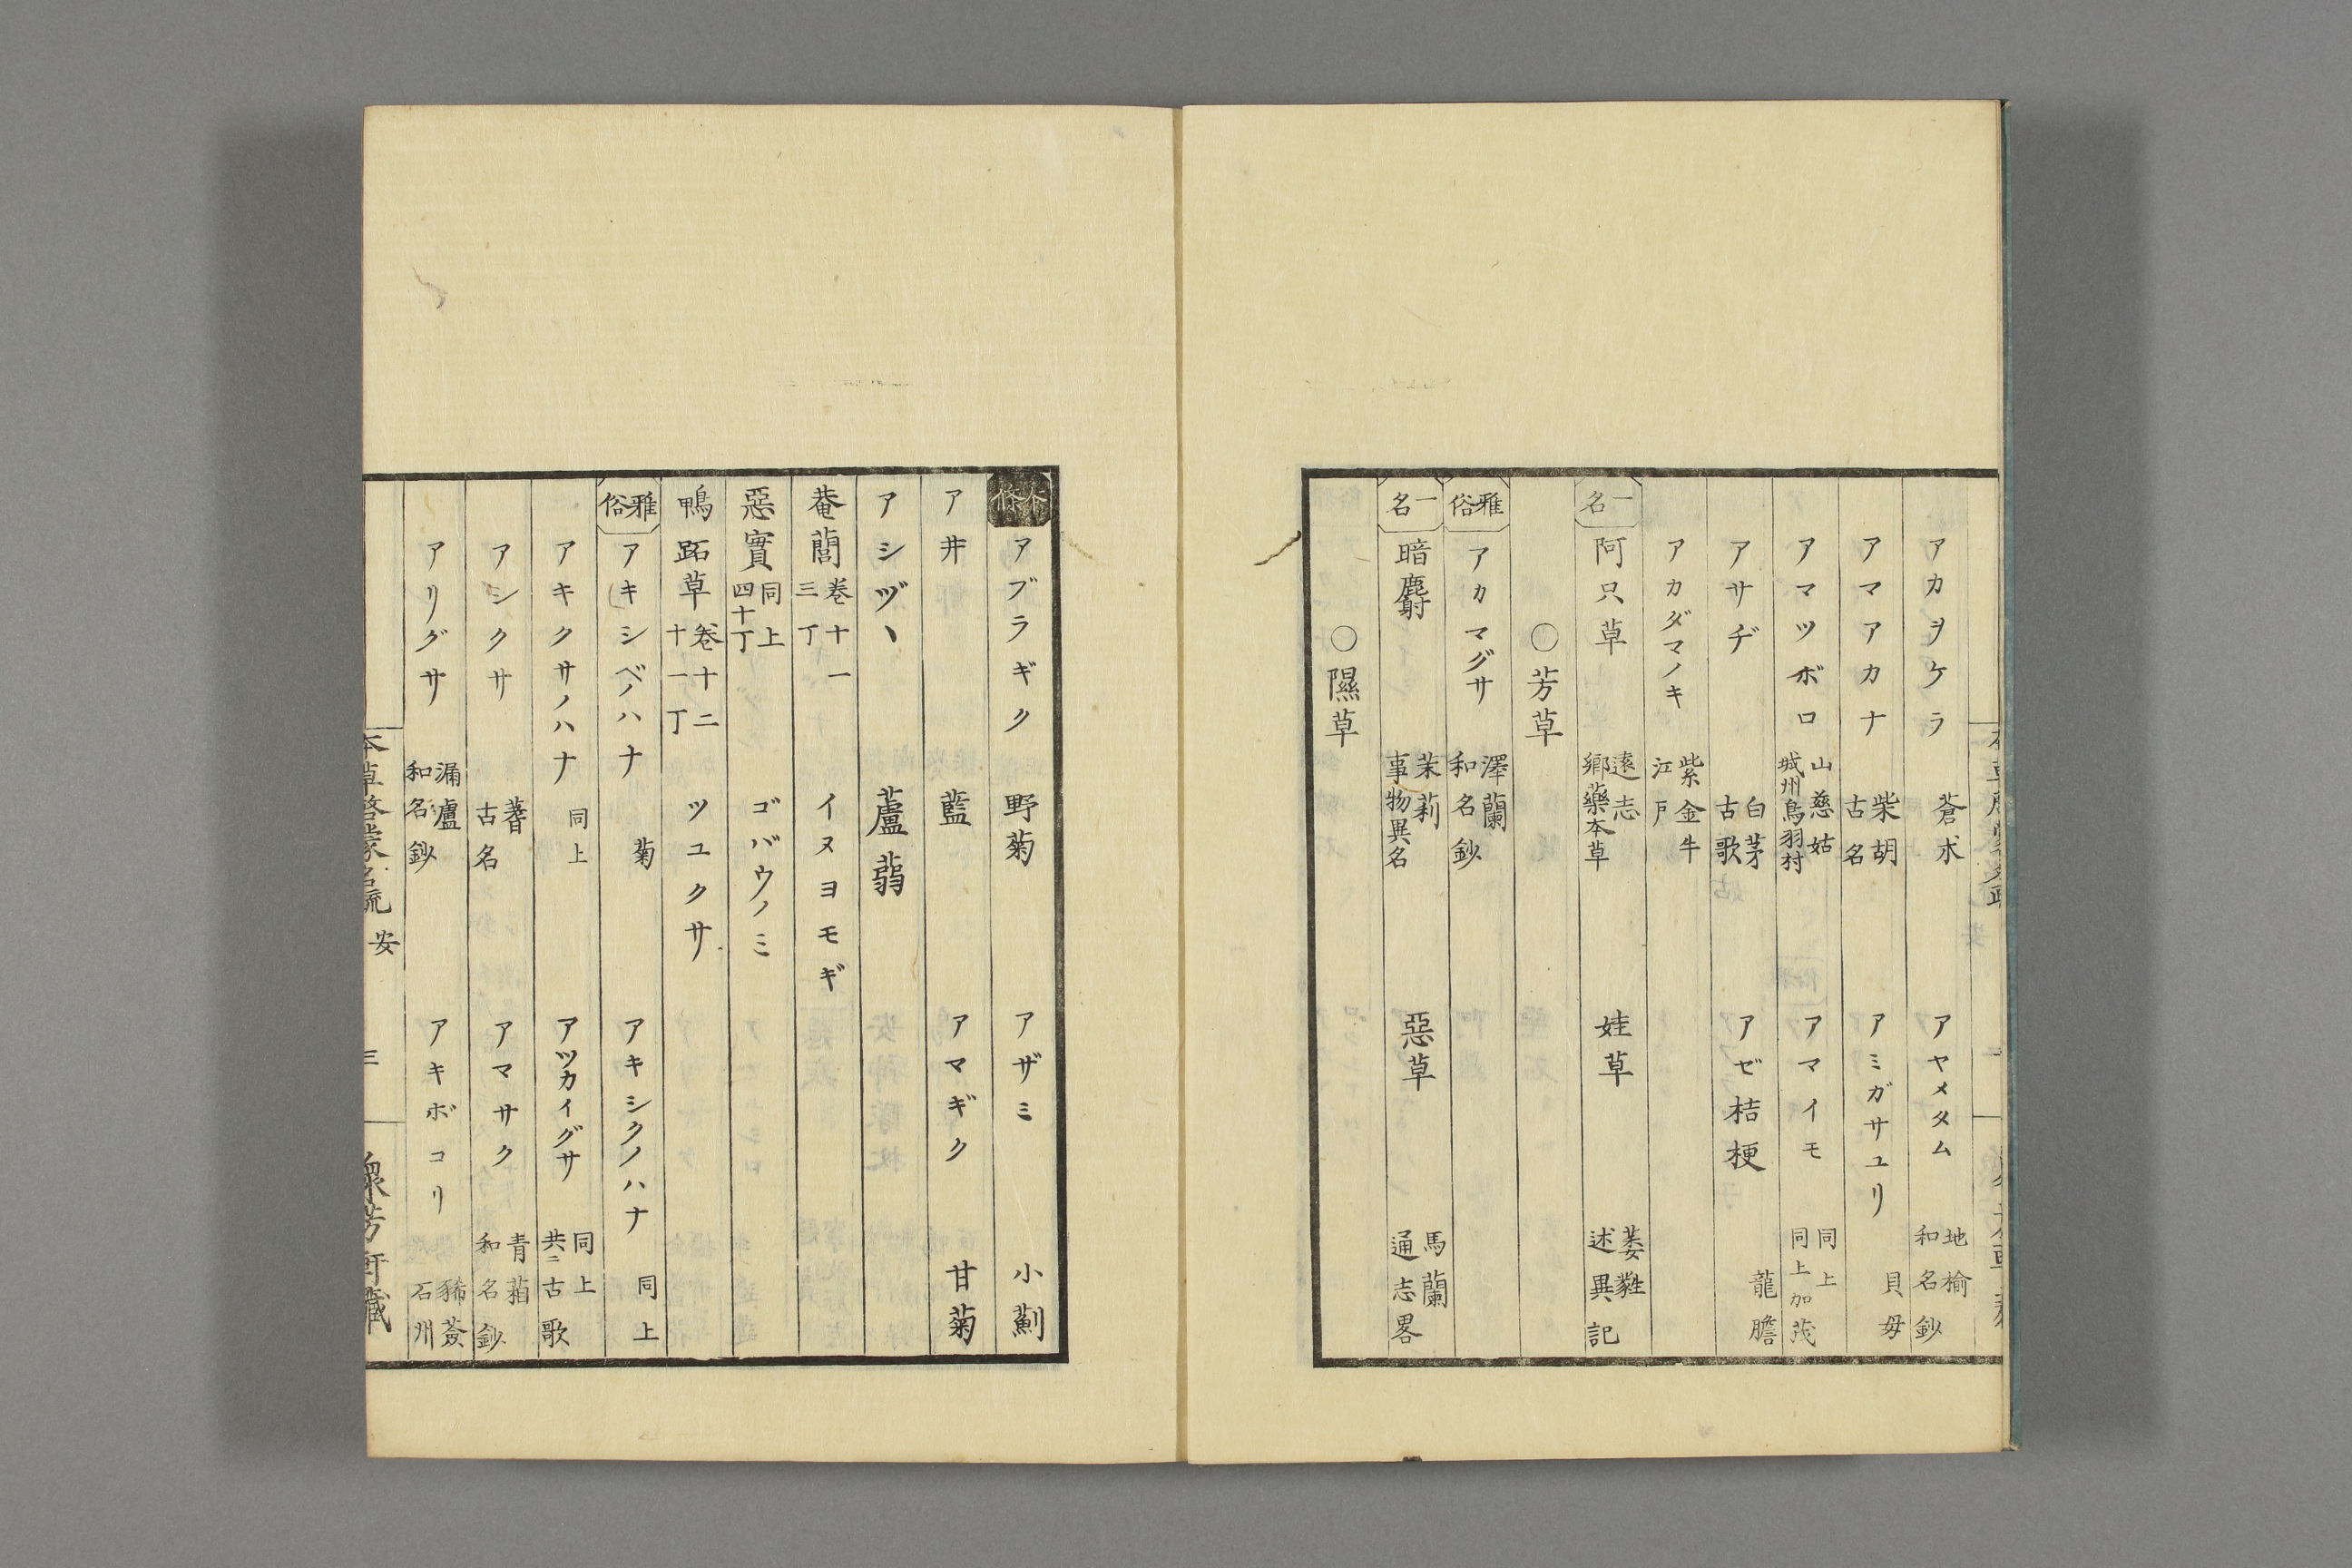 アカヲケラ 蒼朮 アヤメタム 地楡 和名鈔
アマアカナ 柴胡 古名 アミガサユリ 貝母
アマツボロ 山慈姑 城州鳥羽村 アマイモ 同上 同上加茂
アサヂ 白茅 古歌 アゼ桔梗 龍膽
アカダマノキ 紫金牛 江戸
一名 阿只草 遠志 郷藥本草 娃草 萎蕤 述異記
○芳草
雅俗 アカマグサ 澤蘭 和名鈔
一名 暗麝 茉莉 事物異名 惡草 馬蘭 通志畧
○隰草
本條 アブラギク 野菊 アザミ 小薊
ア井 藍 アマギク 甘菊
アシヅヽ 蘆蒻
菴䕡 卷十一 三丁 イヌヨモギ
惡實 同上 四十丁 ゴバウノミ
鴨跖草 卷十二 十一丁 ツユクサ
雅俗 アキシベノハナ 菊 アキシクノハナ 同上
アキクサノハナ 同上 アツカイグサ 同上 共ニ古歌
アシクサ 蓍 古名 アマサク 青葙 和名鈔
アリグサ 漏盧 和名鈔 アキボコリ 豨薟 石州
本草啓蒙名疏 安 三 衆芳軒藏